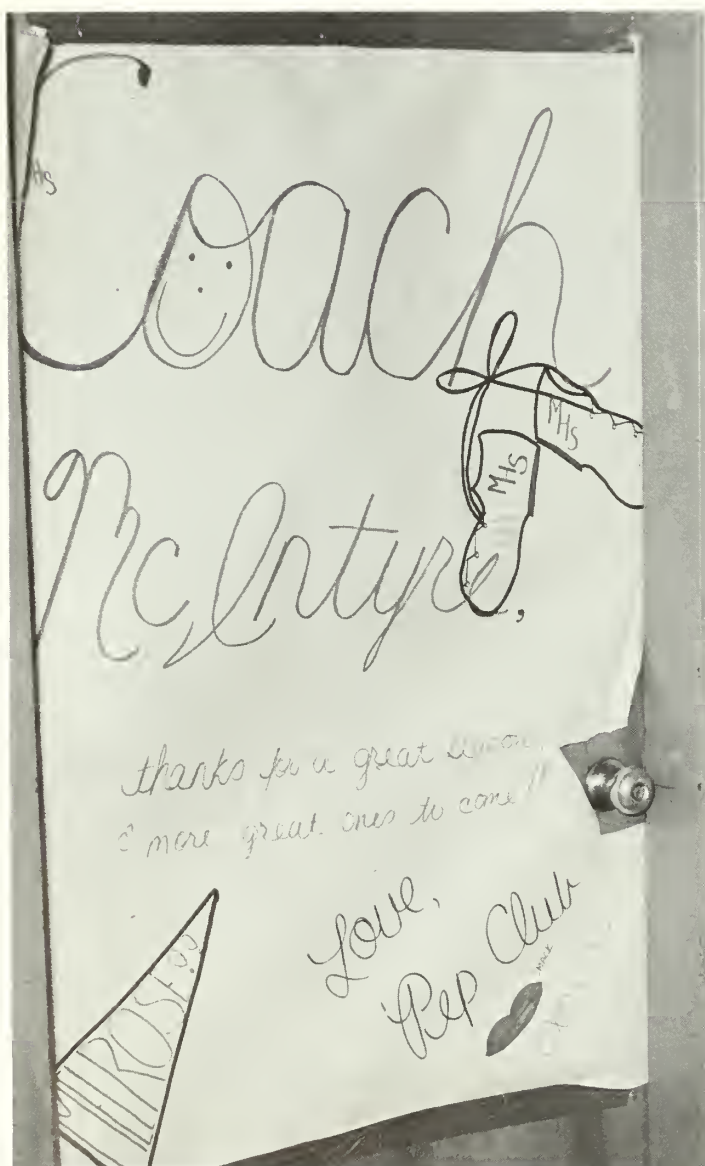 HS
Coach
MHS
MHS
McIntyre,
thanks for a great season,
& more great ones to come!!
Love,
Pep Club